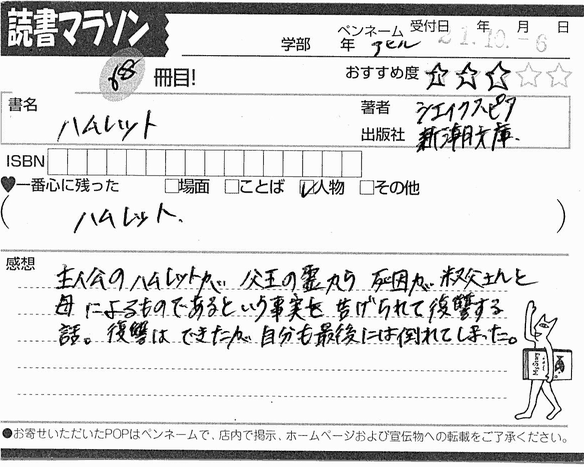 読書マラソン
ペンネーム 受付日 年 月 日
学部 年 アヒル 21.10.-6
68 冊目! おすすめ度 ☆☆☆☆☆
書名 ハムレット
著者 シェイクスピア
出版社 新潮文庫.
ISBN
♥一番心に残った □場面 □ことば ☑人物 □その他
( ハムレット. )
感想
主人公のハムレットが 父王の霊から 死因が 叔父さんと
母によるものであるという事実を 告げられて復讐する
話。復讐は できたが 自分も最後には倒れてしまった。
●お寄せいただいたPOPはペンネームで、店内で掲示、ホームページおよび宣伝物への転載をご了承ください。